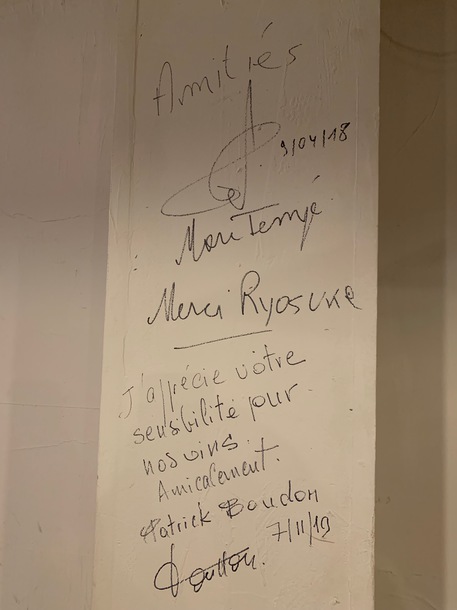 Amitiés
9/04/18
Marc Tempé
Merci Ryosuke
J'apprécie votre
sensibilité pour
nos vins.
Amicalement.
Patrick Boudon
7/11/19